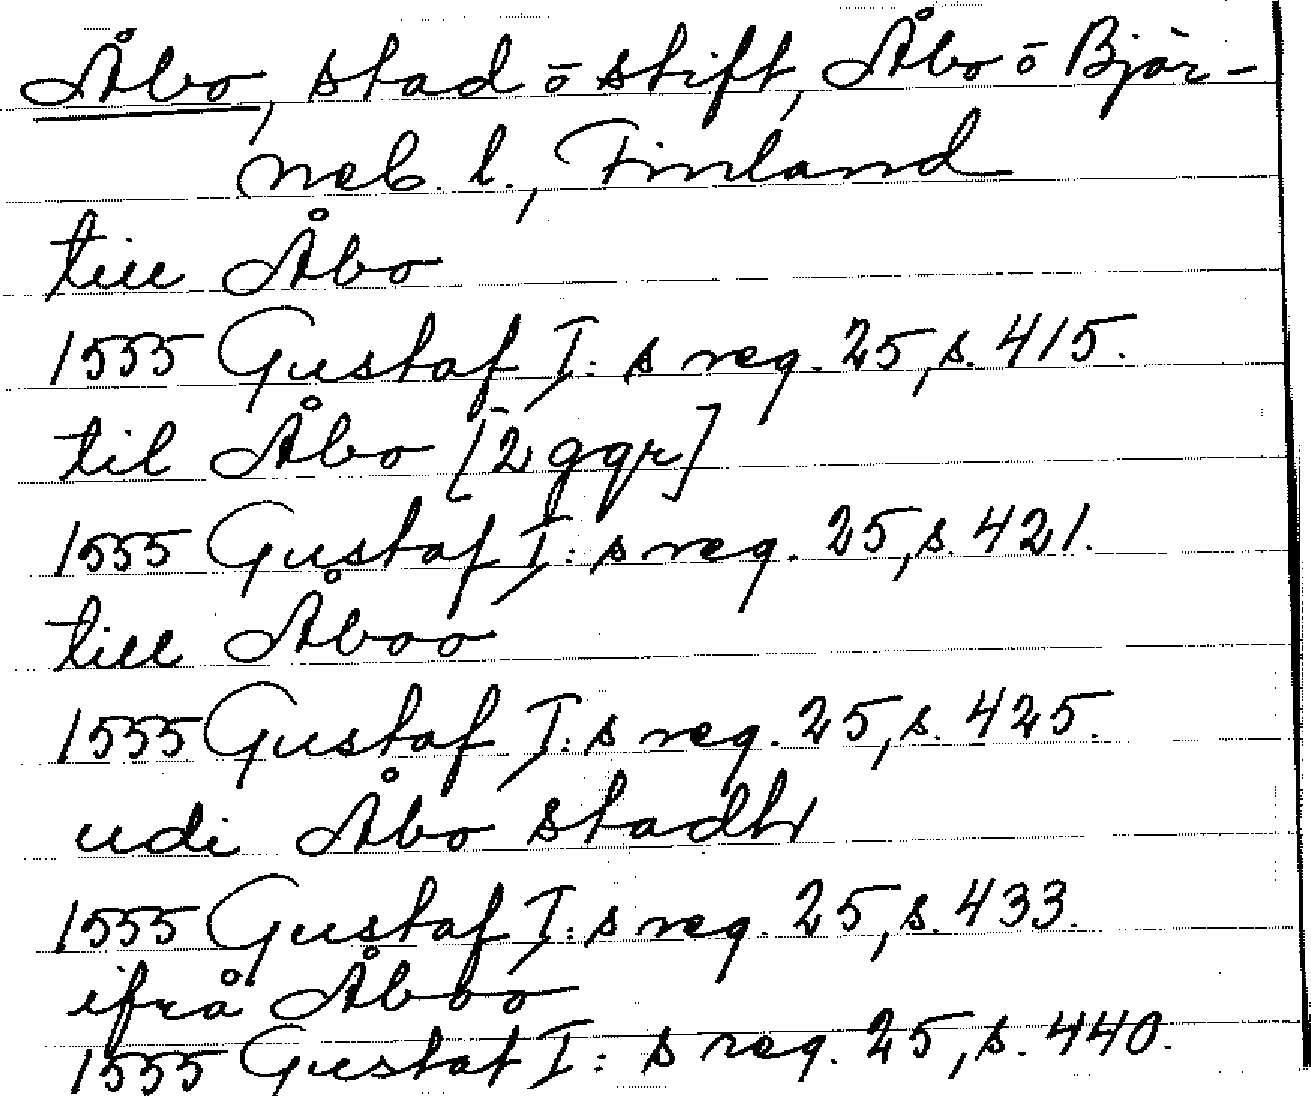 Åbo, stad o stift, Åbo o Bjär-
neb. l., Finland
till Åbo
1555 Gustaf I: s reg. 25, s. 415.
til Åbo [2 ggr]
1555 Gustaf I: s reg. 25, s. 421.
till Åboo
1555 Gustaf I: s reg. 25, s. 425.
udi Åbo stadh
1555 Gustaf I: s reg. 25, s. 433.
ifrå Åboo
1555 Gustaf I: s reg. 25, s. 440.